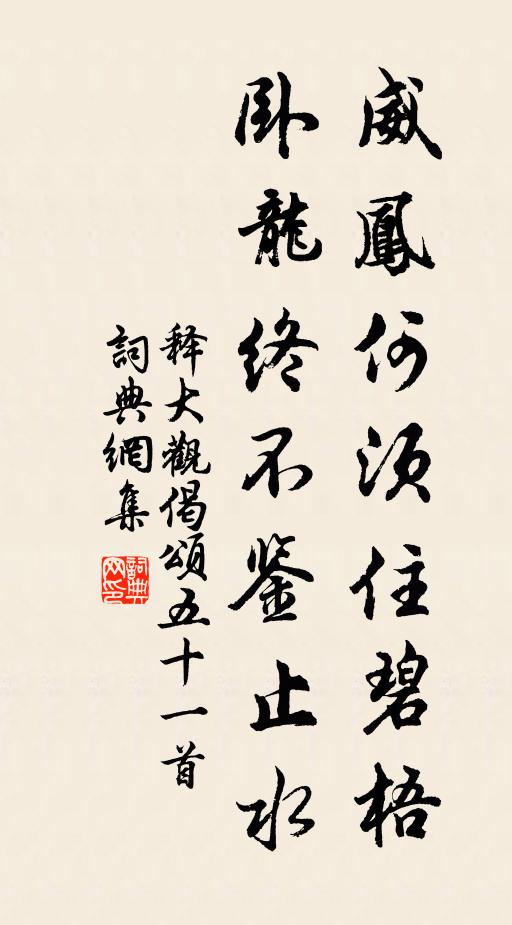 威鳳何須住碧梧
卧龍終不鉴止水
释大觀偈頌五十一首
詞典網集
詞典网印